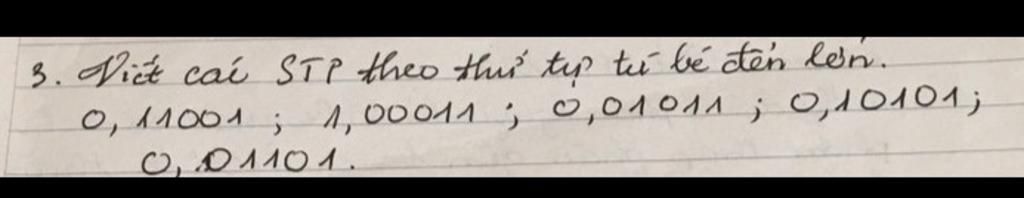 3. Viết các STP theo thứ tự từ bé đến lớn.
0,11001 ; 1,00011 ; 0,01011 ; 0,10101 ;
0,01101.